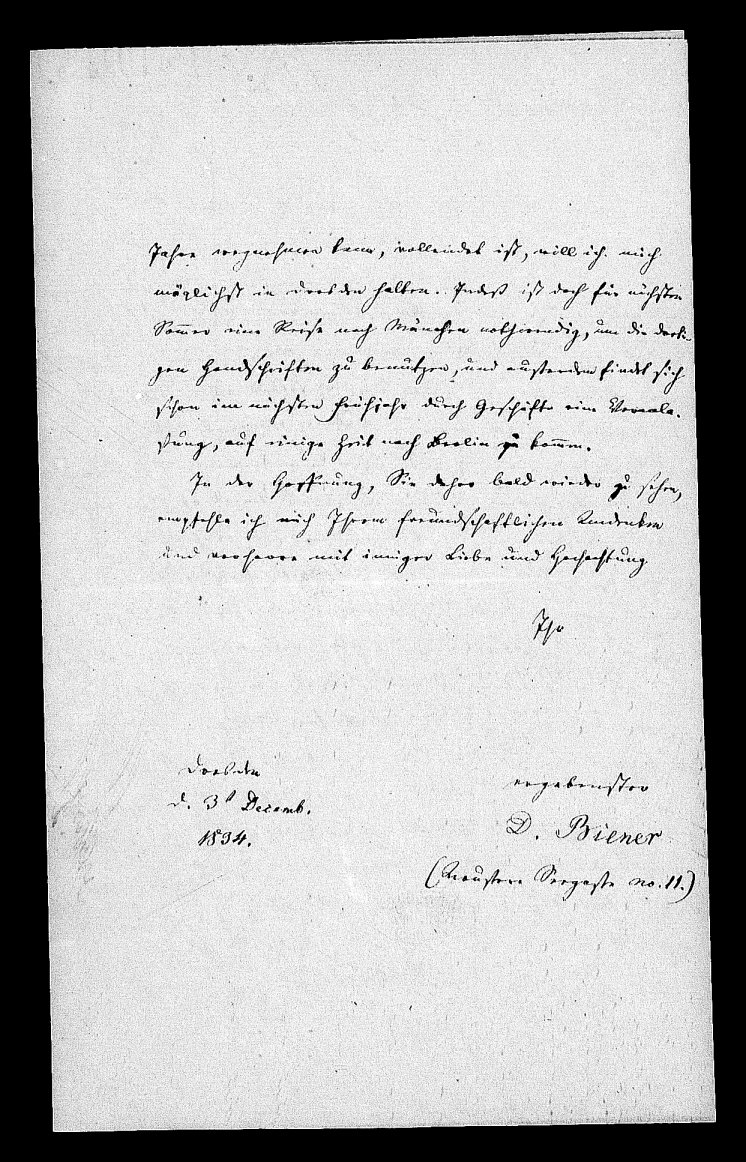 Jahre wegnehmen kann, vollendet ist, will ich mich
möglichst in Dresden halten. Indeß ist doch für nächsten
Sommer eine Reise nach München nothwendig, um die dorti-
gen Handschriften zu benutzen, und außerdem findet sich
schon im nächsten Frühjahr durch Geschäfte eine Veranla-
ßung, auf einige Zeit nach Berlin zu komm̅en.
In der Hoffnung, Sie daher bald wieder zu sehen,
empfehle ich mich Ihrem freundschaftlichen Andenken
und verharre mit inniger Liebe und Hochachtung
Ihr
Dresden
d. 3t Decemb.
1834.
ergebenster
D. Biener
(Äußere Seegasse no. 11.)